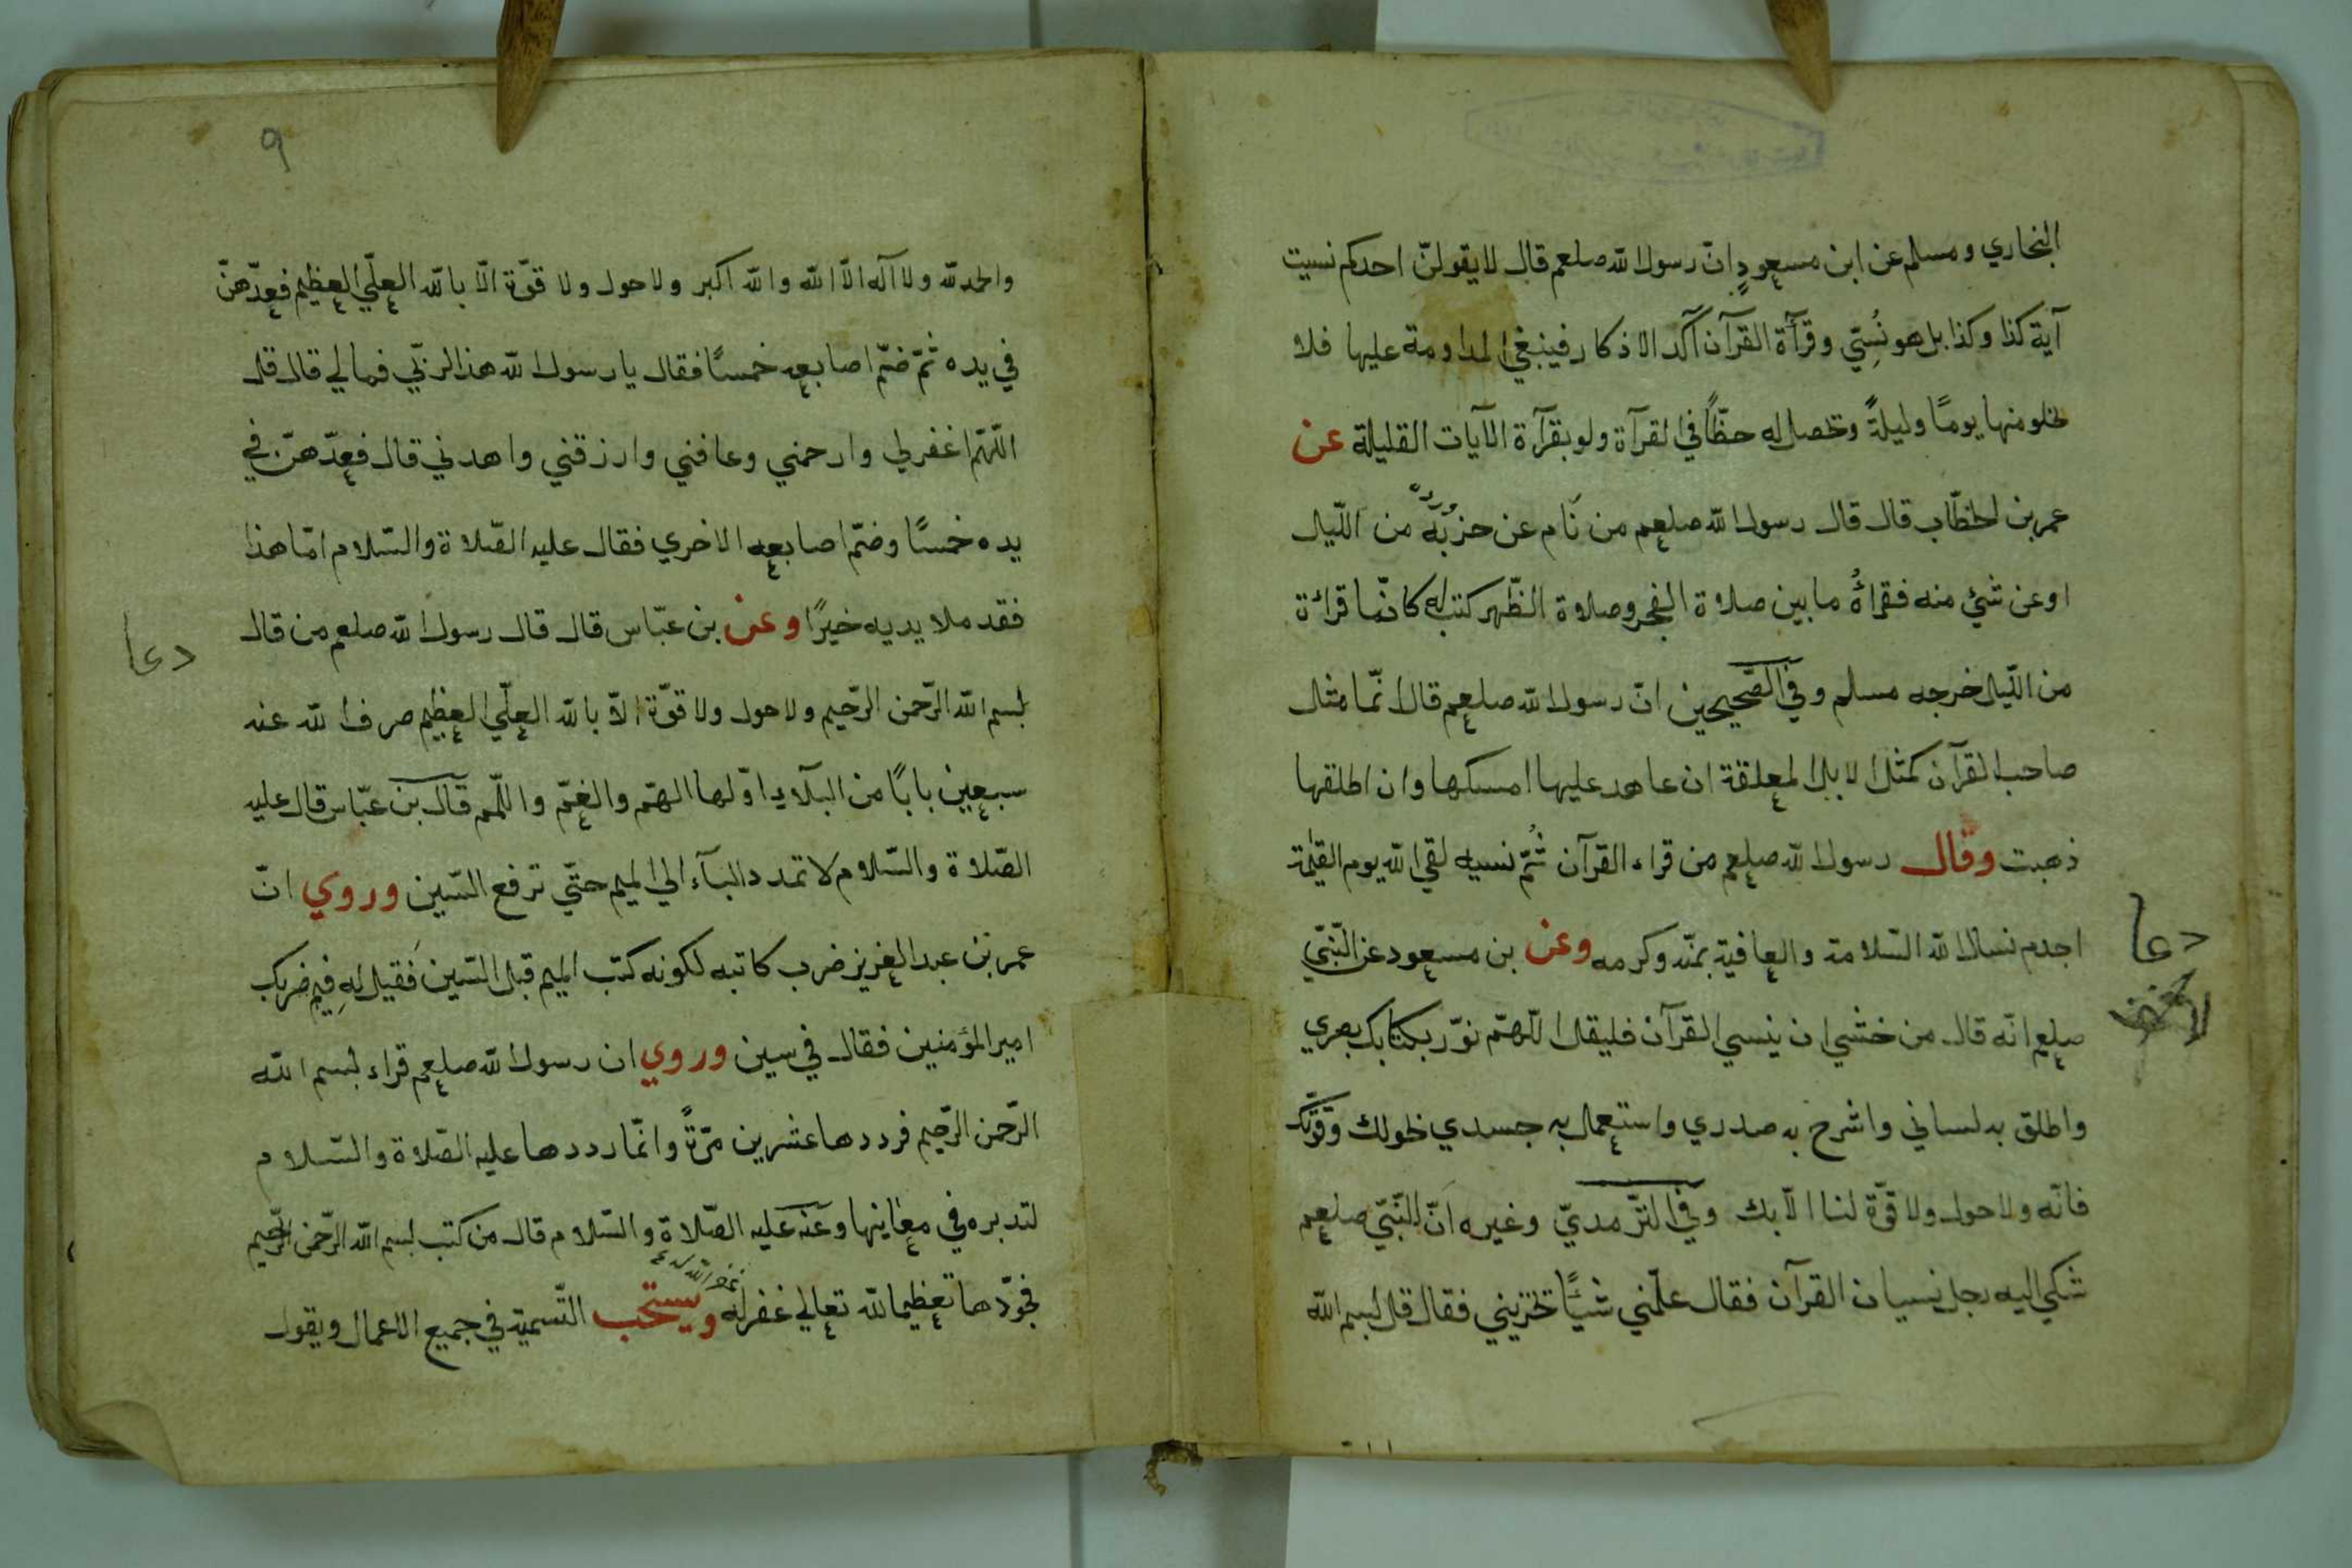 البخاري ومسلم عن ابن مسعودٍ انّ رسول الله صلعم قال لا يقولنّ احدكم نسيت
آية كذا وكذا بل هو نُسِّي وقرآة القرآن آكد الاذكار فينبغي المداومة عليها فلا
يخلو منها يومًا وليلةً وتحصل له حظًّا في القرآة ولو بقرآرة الآيات القليلة عن
عمر بن الخطّاب قال قال رسول الله صلعم من نام عن حزبه من اللّيل
او عن شئ منه فقراهُ ما بين صلاة الفجر وصلاة الظّهر كتب له كانّما قرائة
من اللّيل خرجه مسلم وفي الصّحيحين انّ رسول الله صلعم قال انّما مثل
صاحب القرآن كمثل الابل المعلقة ان عاهد عليها امسكها وان اطلقها
ذهبت وقال رسول الله صلعم من قراء القرآن ثُمّ نسيه لقي الله يوم القيمة
اجذم نسال الله السّلامة والعافية بمنّه وكرمه وعن بن مسعود عن النّبيّ
دعا
صلعم انّه قال من خشي ان ينسي القرآن فليقل اللّهمّ نوّر بكتابك بصري
واطلق به لساني واشرح به صدري واستعمل به جسدي بحولك وقوّتك
فانّه ولا حول ولا قوّة لنا الّا بك وفي التّرمديّ وغيره انّ النّبيّ صلعم
شكي اليه رجل نسيان القرآن فقال علّمني شيئًا تجزيني فقال قل بسم الله
٩
والحمد لله ولا آله الّا الله والله اكبر ولا حول ولا قوّة الّا بالله العلّي العظيم فعدّهنّ
في يده ثمّ ضمّ اصابعه خمسًا فقال يا رسول الله هذا لربّي فما لي قال قل
اللّهمّ اغفر لي وارحمني وعافني وارزقني واهدني قال فعدّهنّ في
يده خمسًا وضمّ اصابعه الاخري فقال عليه الصّلاة والسّلام امّا هذا
فقد ملا يديه خيرًا وعن بن عبّاس قال قال رسول الله صلعم من قال
دعا
بسم الله الرّحمن الرّحيم ولا حول ولا قوّة الّا بالله العلّي العظيم صرف الله عنه
سبعين بابًا من البلآء اوّلها الهمّ والغمّ واللّمم قال بن عبّاس قال عليه
الصّلاة والسّلام لا تمدد البآء الي الميم حتّي ترفع السّين وروي انّ
عمر بن عبد العزيز ضرب كاتبه لكونه كتب الميم قبل السّين فقيل له فيم ضربك
امير المؤمنين فقال في سين وروي ان رسول الله صلعم قراء بسم الله
الرّحمن الرّحيم فرددها عشرين مرّةً وانّما رددها عليه الصّلاة والسّلام
لتدبره في معانيها وعنه عليه الصّلاة والسّلام قال من كتب بسم الله الرّحمن الرّحيم
فجوّدها تعظيما لله تعالي غفر له ويستحب التّسمية في جميع الاعمال ويقول